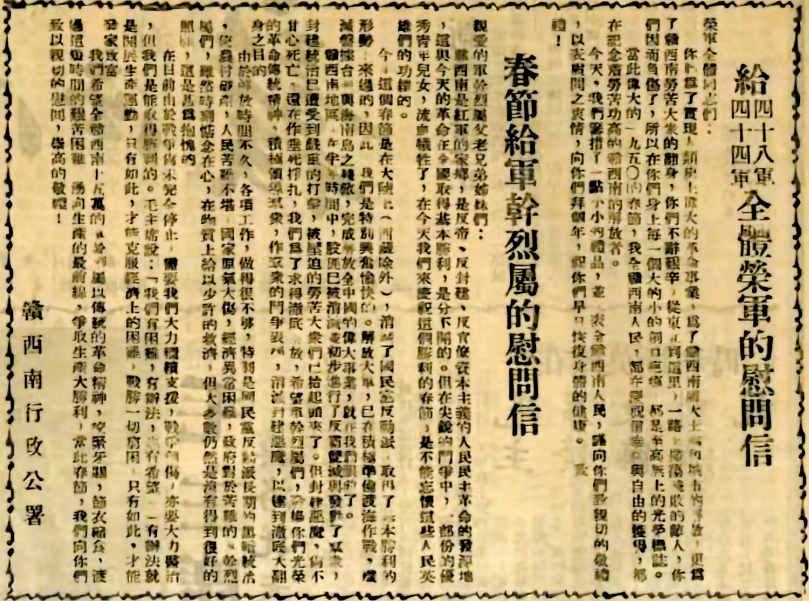 給四十八軍四十四軍全體榮軍的慰問信
榮軍全體同志們:
你們爲了實現人類史上偉大的革命事業,爲了贛西南國土和城市的解放,更爲
了贛西南勞苦大衆的翻身,你們不辭艱辛,從東北到這里,一路上掃蕩殘敗的敵人,你
們因而負傷了,所以在你們身上每一個大的小的創口疤痕,都是至高無上的光榮標誌。
當此偉大的一九五〇的春節,我全贛西南人民,都在慶祝自由的獲得,都
在記念着勞苦功高的贛西南的解放者。
今天,我們謹措了一點小小的禮品,並代表全贛西南人民,謹向你們致親切的敬禮
,以表慰問之衷情,向你們拜個年,祝你們早日恢復身體的健康。致
禮!
春節給軍幹烈屬的慰問信
親愛的軍幹烈屬父老兄弟姊妹們:
贛西南是紅軍的家鄉,是反帝、反封建、反官僚資本主義的人民民主革命的發源地
,這與今天的革命在全國取得基本勝利,是分不開的。但在尖銳的鬥爭中,一部份的優
秀青年兒女,流血犧牲了,在今天我們來慶祝這個勝利的春節,是不能忘懷這些人民英
雄們的功績的。
今年這個春節是在大陸上(西藏除外),消滅了國民黨反動派,取得了基本勝利的
形勢下來過的,因此,我們是特別興奮愉快的。解放大軍,已在積極準備渡海作戰,
滅盤據台灣與海南島之殘敵,完成解放全中國的偉大事業,就在我們眼前了。
贛西南地區,在半年時間中,股匪已被消滅並初步進行了反霸減租與發動了羣衆,
封建統治已遭受到嚴重的打擊,被壓迫的勞苦大衆們已抬起頭來了。但封建惡魔,尚不
甘心死亡,還在作垂死掙扎,我們爲了求得澈底解放,希望軍幹烈屬們,發揚你們光榮
的革命傳統精神,積極領導羣衆,作羣衆的鬥爭表率,消滅封建惡魔,以達到澈底大翻
身之目的。
由於解放時間不久,各項工作,做得很不夠,特別是國民黨反動派長期的黑暗統治
,使農村破產,人民苦難不堪,國家原氣大傷,經濟異常困難,政府對於苦難的軍幹烈
屬們,雖然時刻惦念在心,在物質上給以少許的救濟,但大多數仍然是沒有得到很好的
照顧,這是甚爲抱愧的。
在目前由於戰爭尚未完全停止,需要我們大力積極支援,戰爭創傷,亦要大力醫治
,但我們是能取得勝利的。毛主席說:「我們有困難,有辦法,也有希望」有辦法就
是開展生產運動,只有如此,才能克服經濟上的困難,戰勝一切窮困,只有如此,才能
發家致富。
我們希望全贛西南十五萬的軍幹烈屬以傳統的革命精神,咬緊牙關,節衣縮食,渡
過這短時間的艱苦困難,湧向生產的最前線,爭取生產大勝利,當此春節,我們向你們
致以親切的慰問,崇高的敬禮!
贛西南行政公署